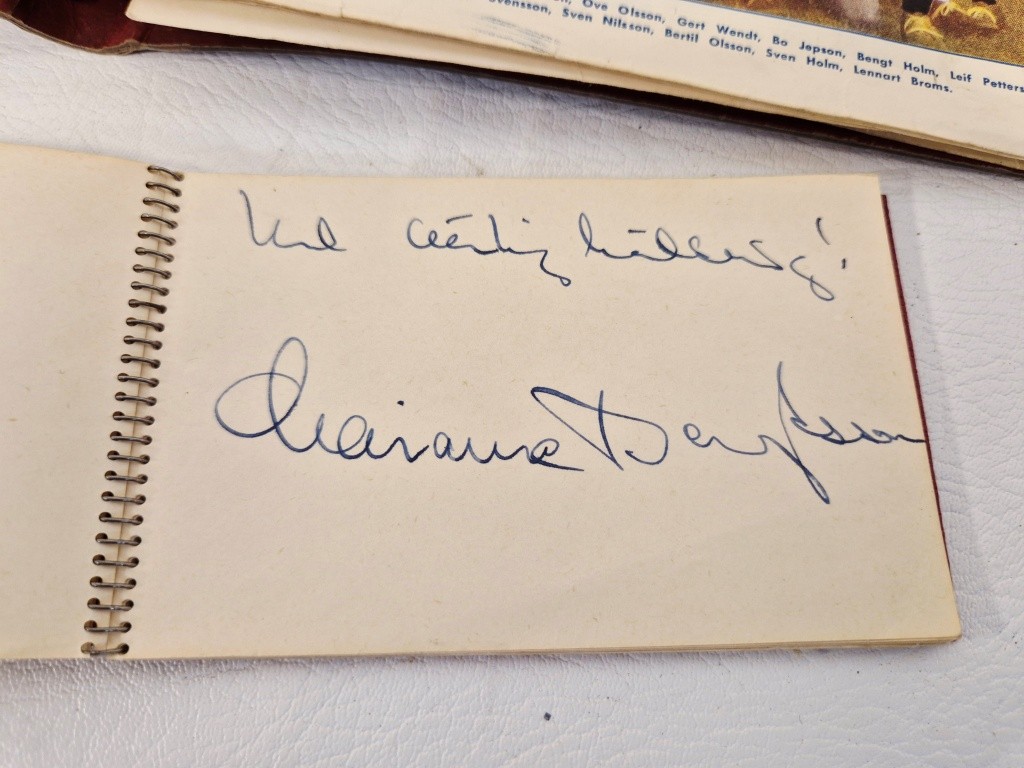 Ove Olsson, Gert Wendt, Bo Jepson, Bengt Holm, Leif Petters
Svensson, Sven Nilsson, Bertil Olsson, Sven Holm, Lennart Broms.
Med vänlig hälsning!
Marianne Bengtsson